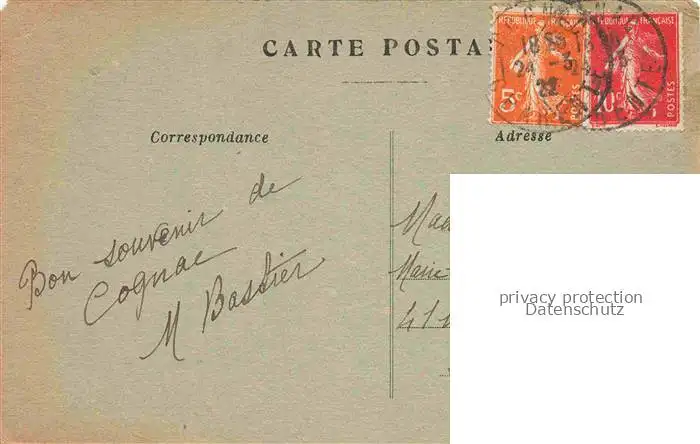 CARTE POSTA
RÉPUBLIQUE FRANÇAISE
5c
POSTES
RÉPUBLIQUE FRANÇAISE
10c
POSTES
Correspondance
Adresse
Bon souvenir de
Cognac
M Bastier
Mad
Marie
privacy protection
Datenschutz